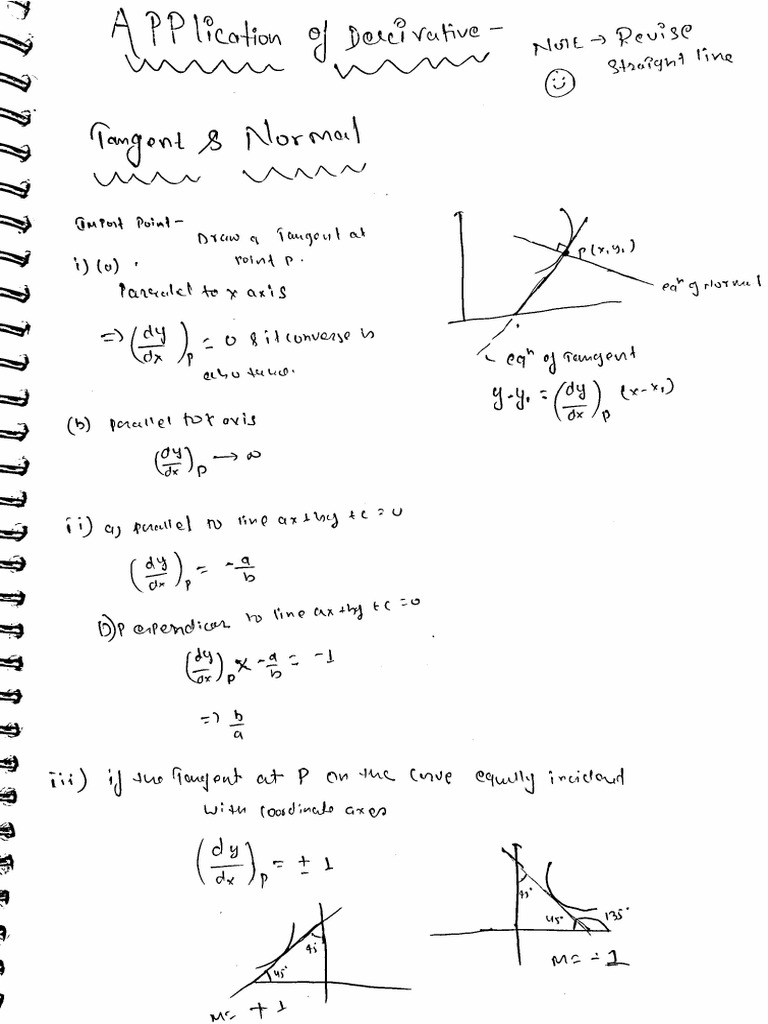 Application of Dercivative -
NOTE → Revise
straight line
Tangent & Normal
Import Point-
Draw a Tangent at
point P.
i) (a)
Parerallel to x axis
=> (dy/dx)P = 0 & it converse is
also true.
P(x, y1)
eqn of Normal
eqn of Tangent
y - y1 = (dy/dx)P (x - x1)
(b) parallel to Y axis
(dy/dx)P → ∞
ii) a) parallel to line ax + by + c = 0
(dy/dx)P = -a/b
b) Perpendicar to line ax + by + c = 0
(dy/dx)P × -a/b = -1
=> b/a
iii) if the Tangent at P on the curve eqully inclcloud
with coordinate axes
(dy/dx)P = ± 1
45°
45°
M = +1
45°
45°
135°
M = -1